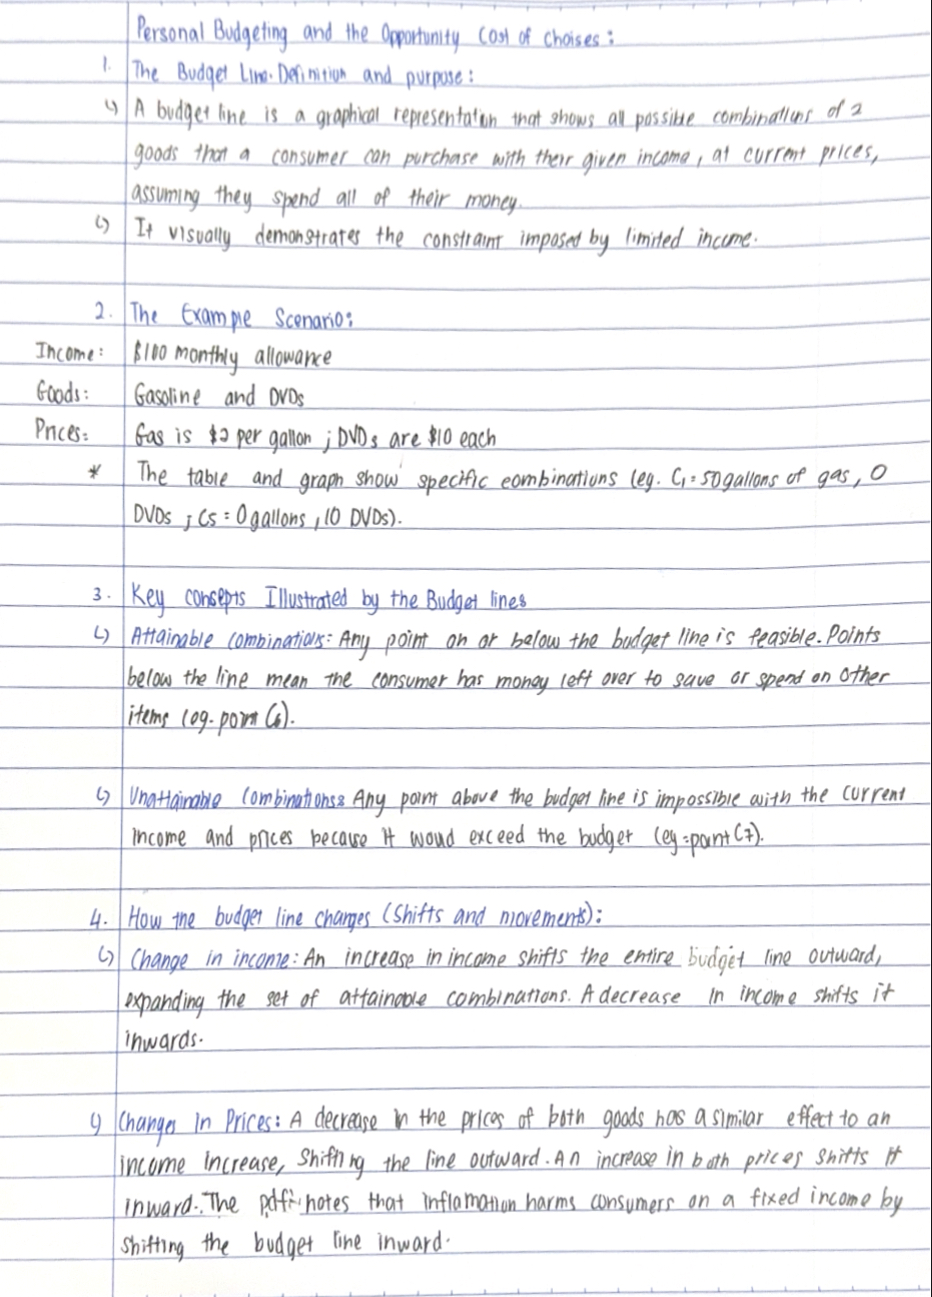 Personal Budgeting and the Opportunity Cost of choises:
1. The Budget Line. Definition and purpose:
↳ A budget line is a graphical representation that shows all possible combinations of 2
goods that a consumer can purchase with their given income, at current prices,
assuming they spend all of their money.
↳ It visually demonstrates the constraint imposed by limited income.
2. The Example Scenario:
Income: $100 monthly allowance
Goods: Gasoline and DVDs
Prices: Gas is $2 per gallon ; DVDs are $10 each
* The table and graph show specific combinations (eg. C1 = 50 gallons of gas, 0
DVDs ; C5 = 0 gallons, 10 DVDs).
3. Key consepts Illustrated by the Budget lines
↳ Attainable combinations: Any point on or below the budget line is feasible. Points
below the line mean the consumer has money left over to save or spend on other
items (eg. point C6).
↳ Unattainable Combinations: Any point above the budget line is impossible with the current
income and prices because it woud exceed the budget (eg = point C7).
4. How the budget line changes (Shifts and movements):
↳ Change in income: An increase in income shifts the entire budget line outward,
expanding the set of attainable combinations. A decrease in income shifts it
inwards.
↳ Changes In Prices: A decrease in the prices of both goods has a similar effect to an
income increase, Shifting the line outward. An increase in both prices shifts it
inward. The notes that inflamation harms consumers on a fixed income by
shifting the budget line inward.